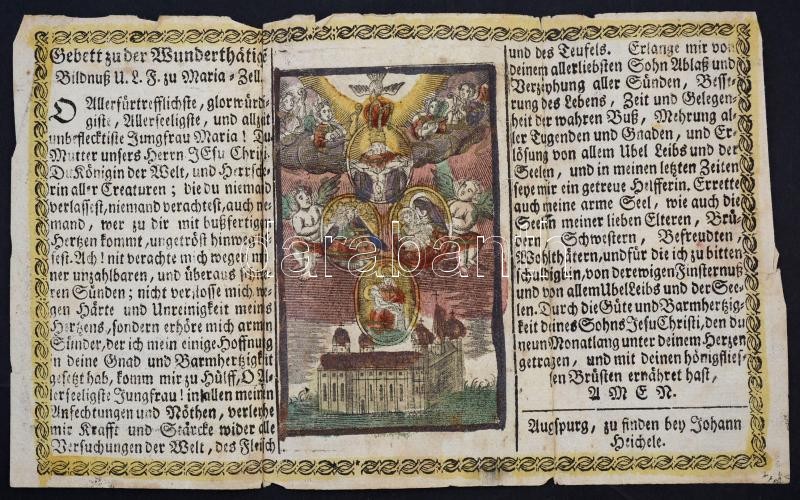 Gebett zu der Wunderthätig
Bildnuß U. L. F. zu Maria-Zell.
O Allerfürtrefflichste, glorwürdi-
giste, Allerseeligste, und allzeit
unbeflecktiste Jungfrau Maria! Du
Mutter unsers Herrn JEsu Christ
Du Königin der Welt, und Herrsche
rin aller Creaturen; die du niemand
verlassest, niemand verachtest, auch ne
mand, wer zu dir mit bußfertige
Hertzen kommt, ungetröst hinweg
sest. Ach! nit verachte mich wegen
ner unzahlbaren, und überaus sch
ren Sünden; nicht verstosse mich we
gen Härte und Unreinigkeit mein
Hertzens, sondern erhöre mich arme
Sünder, der ich mein einige Hoffnung
in deine Gnad und Barmhertzigkeit
gesetzt hab, komm mir zu Hülff, O Al
lerseeligste Jungfrau! in allen meinen
Anfechtungen und Nöthen, verleyhe
mir Krafft und Stärcke wider alle
Versuchungen der Welt, des Fleisch
und des Teufels. Erlange mir von
deinem allerliebsten Sohn Ablaß und
Verzeyhung aller Sünden, Besse-
rung des Lebens, Zeit und Gelegen-
heit der wahren Buß, Mehrung al-
ler Tugenden und Gnaden, und Er-
lösung von allem Ubel Leibs und der
Seelen, und in meinen letzten Zeiten
seye mir ein getreue Helfferin. Errette
auch meine arme Seel, wie auch die
Seelen meiner lieben Elteren, Brü-
dern, Schwestern, Befreudten,
Wohlthätern, und für die ich zu bitten
schuldig bin, von der ewigen Finsternuß
und von allem Ubel Leibs und der See-
len. Durch die Güte und Barmhertzig-
keit dines Sohns Jesu Christi, den du
neun Monat lang unter deinem Herzen
getrazen, und mit deinen hönigflies-
sen Brüsten ernähret hast,
A M E N.
Augspurg, zu finden bey Johann
Heichele.
darabanth